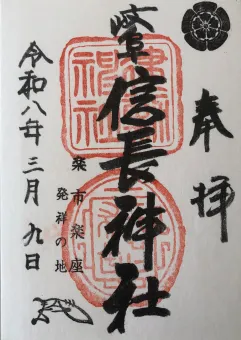 奉拝
岐阜信長神社
建勲神社
楽市楽座
発祥の地
令和八年三月九日